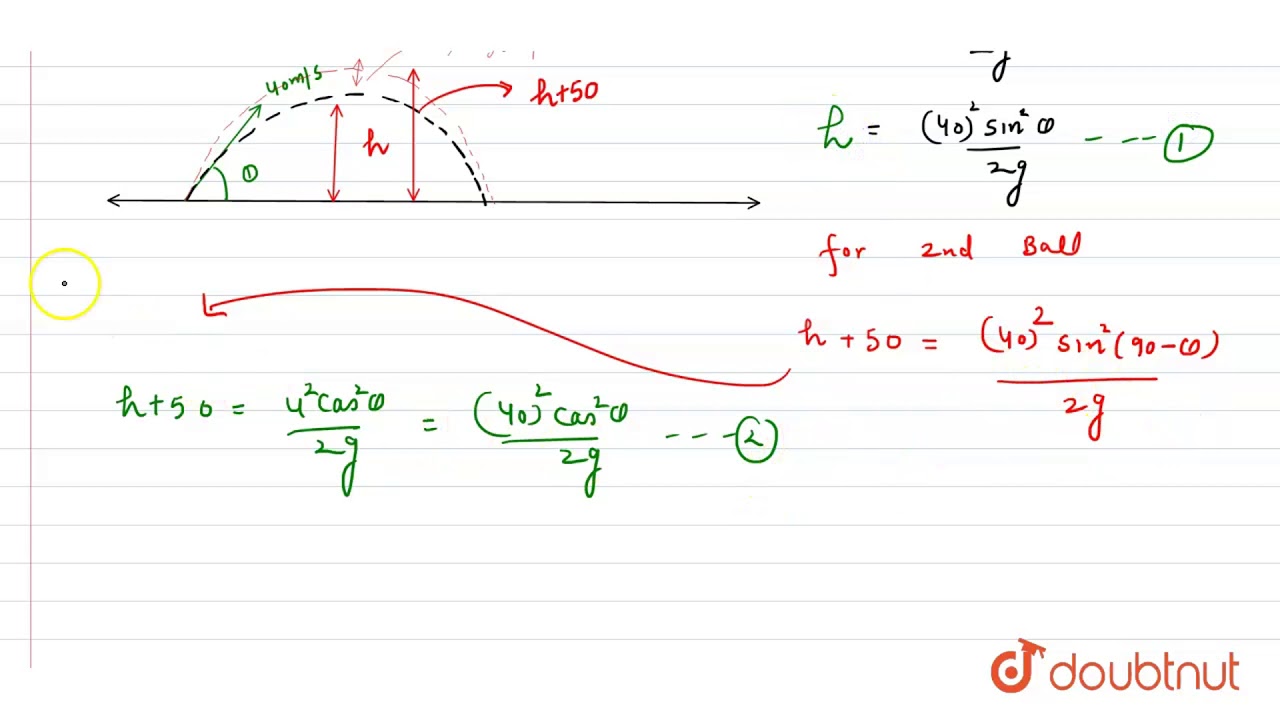 40m/s
h+50
h
①
h = (40)² sin² θ / 2g - - -- ①
for 2nd Ball
h + 50 = (40)² sin² (90-θ) / 2g
h+50 = u² cos² θ / 2g = (40)² cos² θ / 2g - - - ②
doubtnut